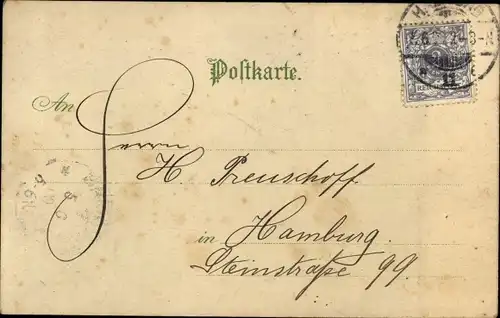 Postkarte.
An
Herrn
H. Preuschoff
in Hamburg.
Steinstraße 99.